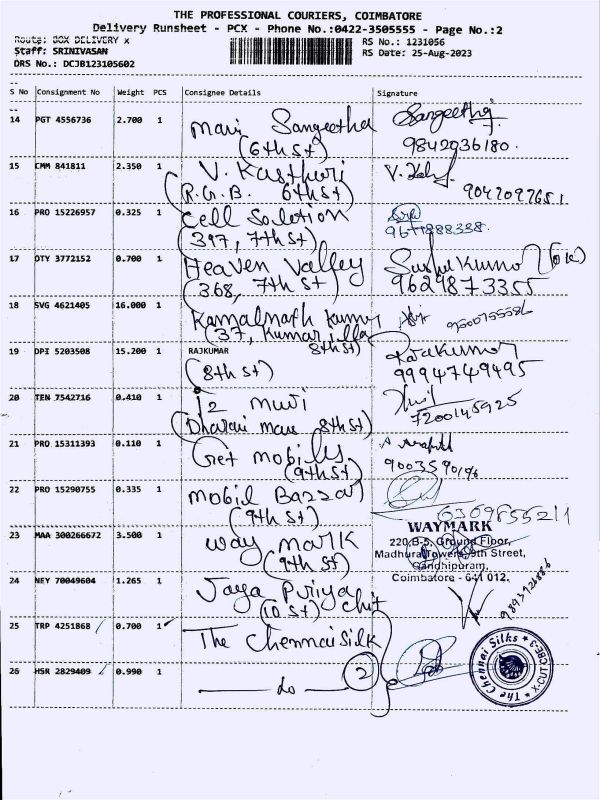 THE PROFESSIONAL COURIERS, COIMBATORE
Delivery Runsheet - PCX - Phone No.:0422-3505555 - Page No.:2
Route: BOX DELIVERY x
RS No.: 1231056
Staff: SRINIVASAN
RS Date: 25-Aug-2023
DRS No.: DCJB123105602
S No Consignment No Weight PCS Consignee Details Signature
14 PGT 4556736 2.700 1 Mani Sangeetha Sangeetha
(6th St) 9842936180.
15 CMM 841811 2.350 1 V. Kasthuri
(R.G.B. 6th St) 9042097651
16 PRO 15226957 0.325 1 Cell Solution
(397, 7th St) 9677888338.
17 OTY 3772152 0.700 1 Heaven Valley
(368, 7th St) 9629873355
18 SVG 4621405 16.000 1 Kamalnath Kumar
(37, Kumar 8th St)
19 DPI 5203508 15.200 1 RAJKUMAR Rajakumar
(8th St) 9994749495
20 TEN 7542716 0.410 1
(Dharani 8th St) 7200145925
21 PRO 15311393 0.110 1 Get Mobiles
(9th St)
22 PRO 15290755 0.335 1 Mobil Bazzar
(9th St) 6309855211
23 MAA 300266672 3.500 1 Way Mark
(9th St)
WAYMARK
220,B-5, Ground Floor,
Madhura Towers, 9th Street,
Gandhipuram,
Coimbatore - 641 012.
24 NEY 70049604 1.265 1 Jaya Priya Chit
(10 St)
25 TRP 4251868 0.700 1 The Chennai Silk
26 HSR 2829409 0.990 1 do 2
The Chennai Silks
X-CUT-CBE-3